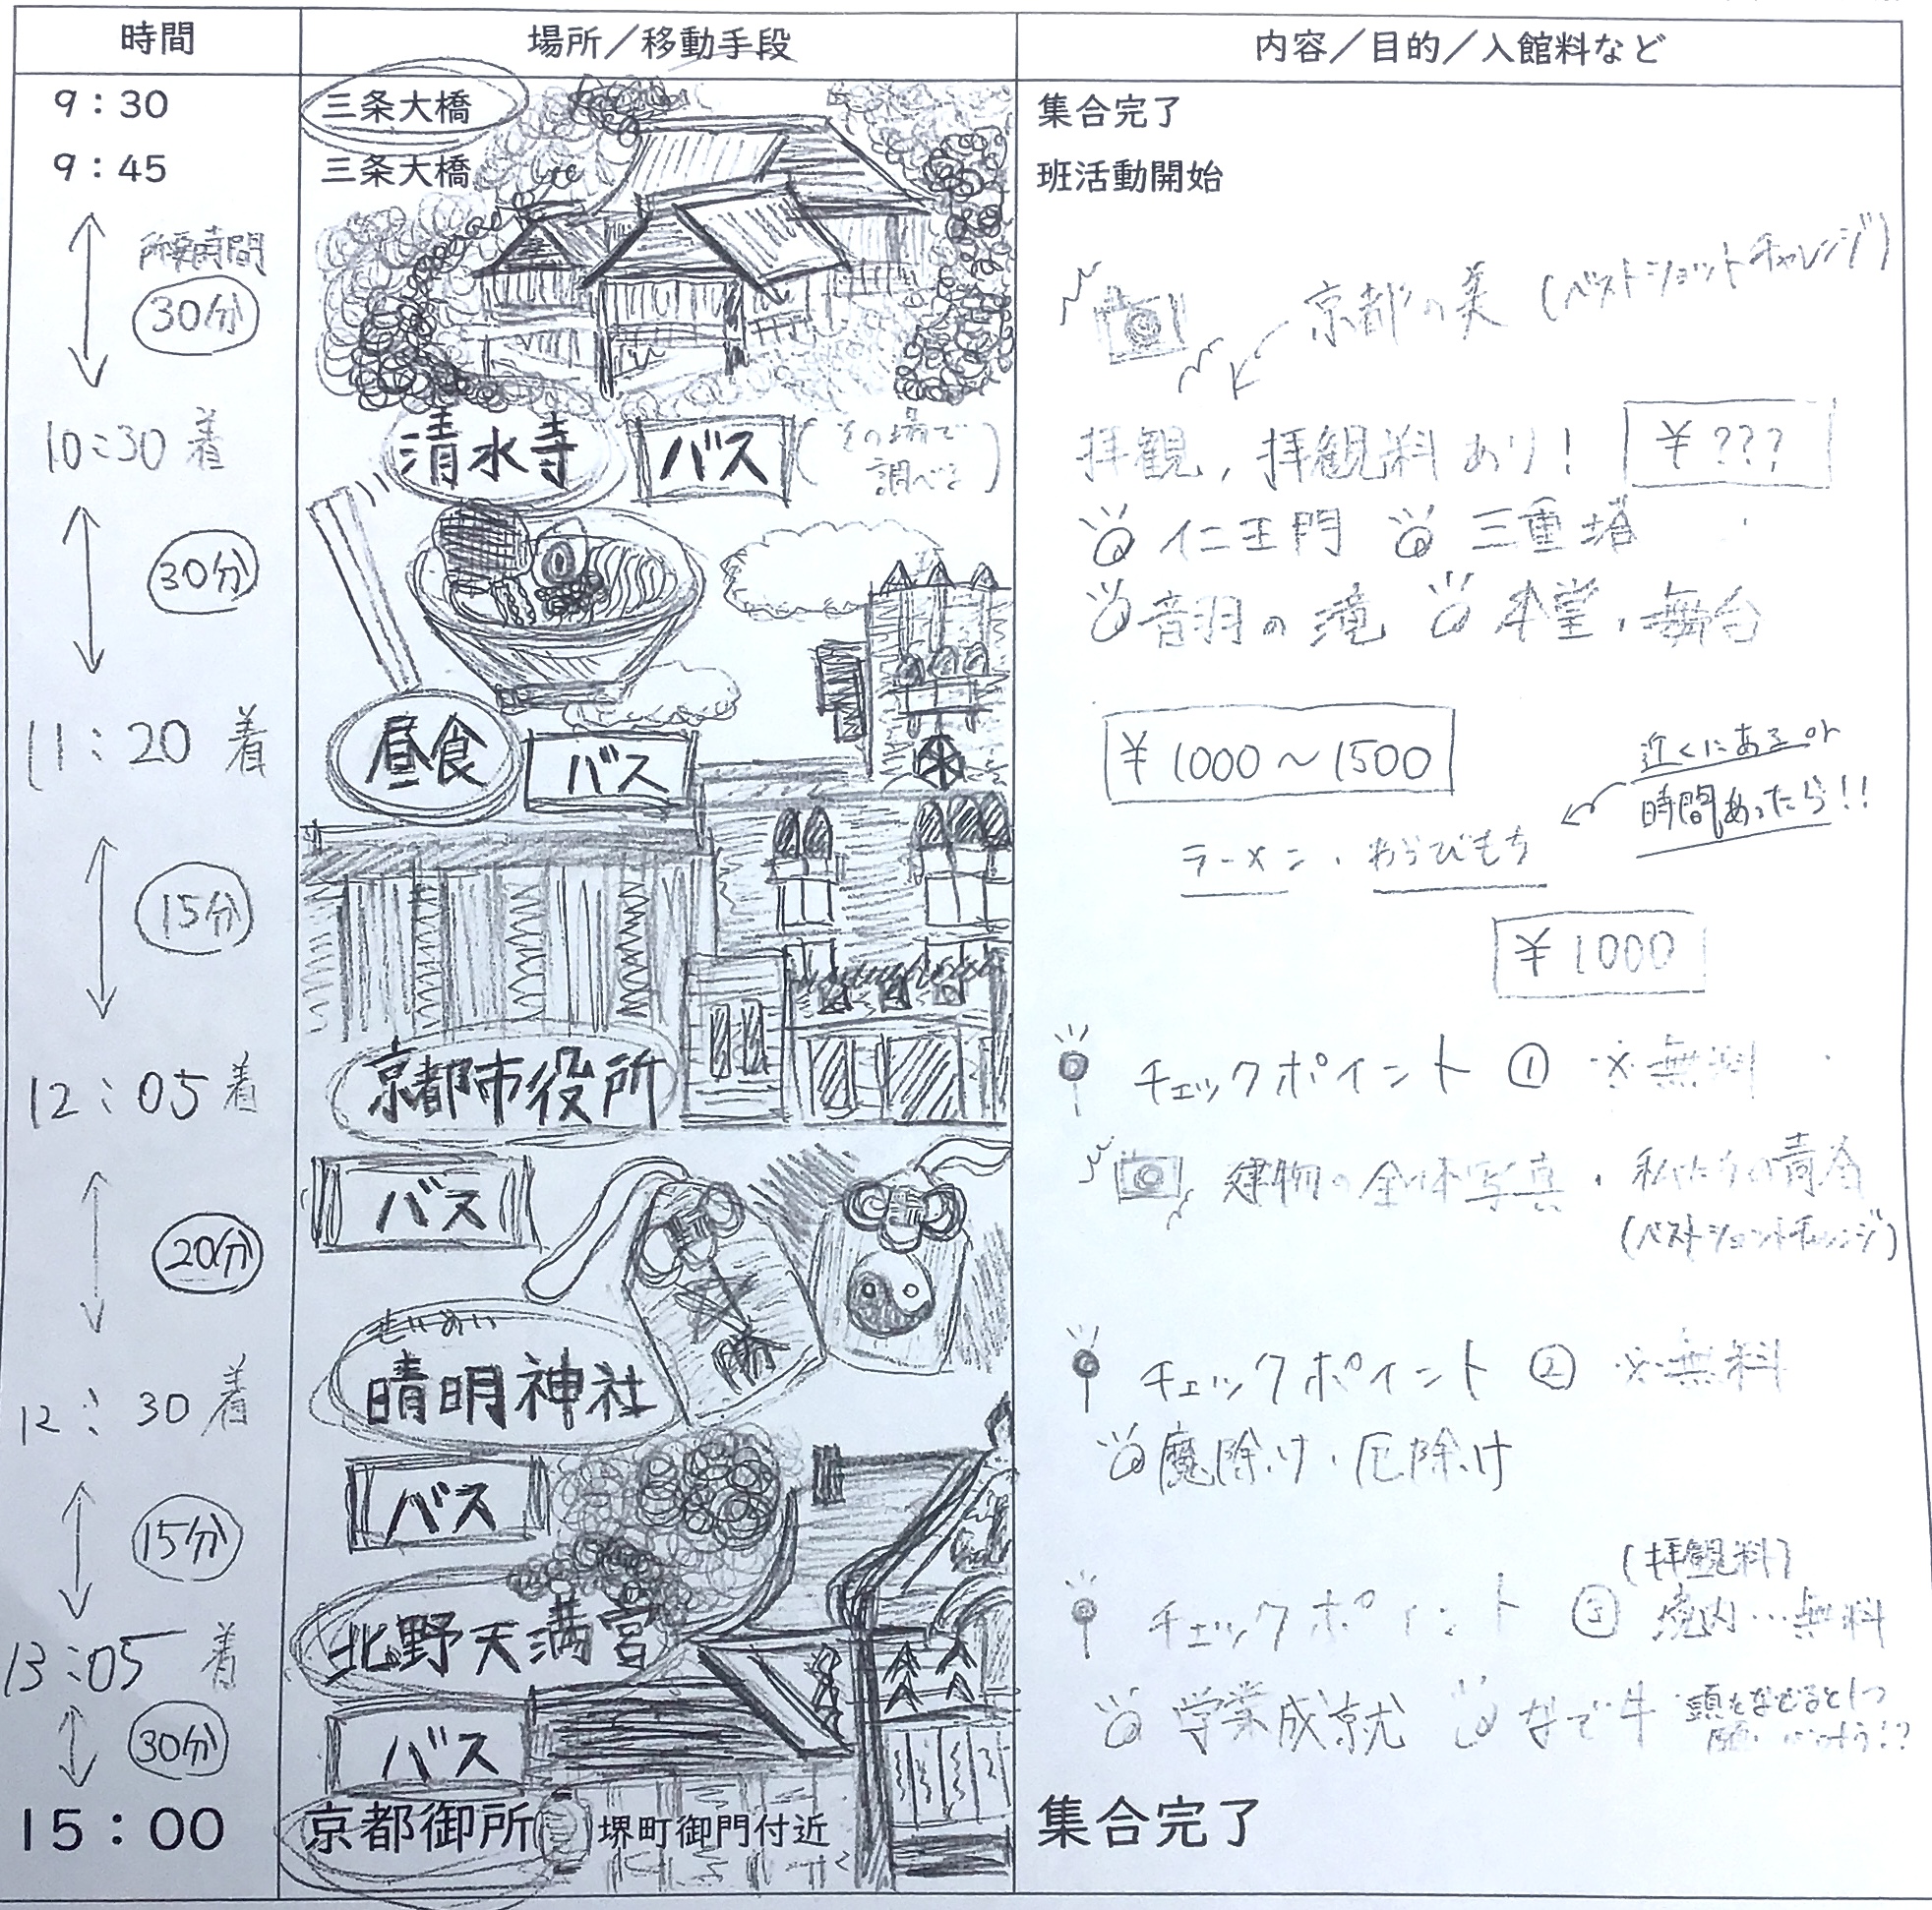 時間 場所／移動手段 内容／目的／入館料など
9：30 三条大橋 集合完了
9：45 三条大橋 班活動開始
所要時間
30分
京都の美 (ベストショットチャレンジ)
10:30 着 清水寺 バス (その場で調べる) 拝観，拝観料あり！ ¥???
仁王門 三重塔
30分
音羽の滝 本堂・舞台
11:20 着 昼食 バス ¥1000～1500
近くにあるor
時間あったら!!
ラーメン・わらびもち
15分
¥1000
12:05 着 京都市役所 チェックポイント ① ※無料
バス 建物の全体写真・私たちの青春
(ベストショットチャレンジ)
20分
せいめい
12:30 着 晴明神社 チェックポイント ② ※無料
魔除け・厄除け
15分 バス
(拝観料)
13:05 着 北野天満宮 チェックポイント ③ 境内…無料
30分 バス 学業成就 なで牛 頭をなでると1つ
15：00 京都御所 堺町御門付近 集合完了